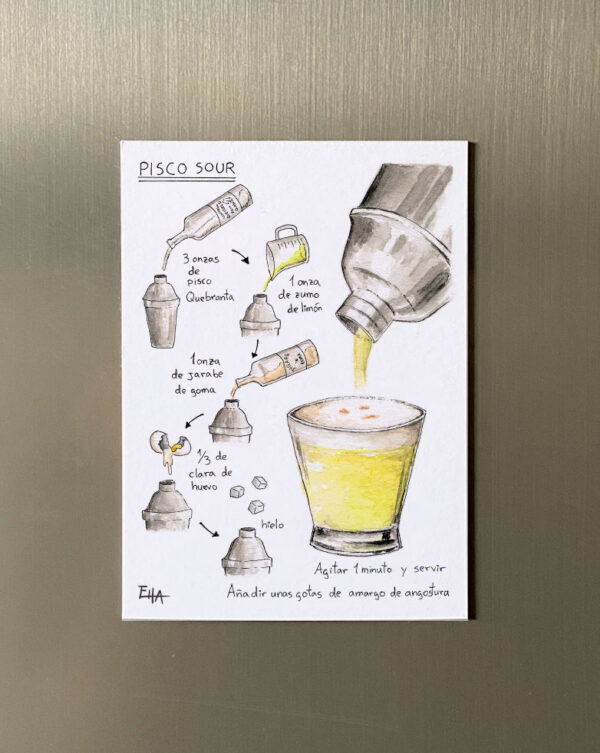 PISCO SOUR
3 onzas
de
pisco
Quebranta
1 onza
de zumo
de limón
1 onza
de jarabe
de goma
1/3 de
clara de
huevo
hielo
Agitar 1 minuto y servir
Añadir unas gotas de amargo de angostura